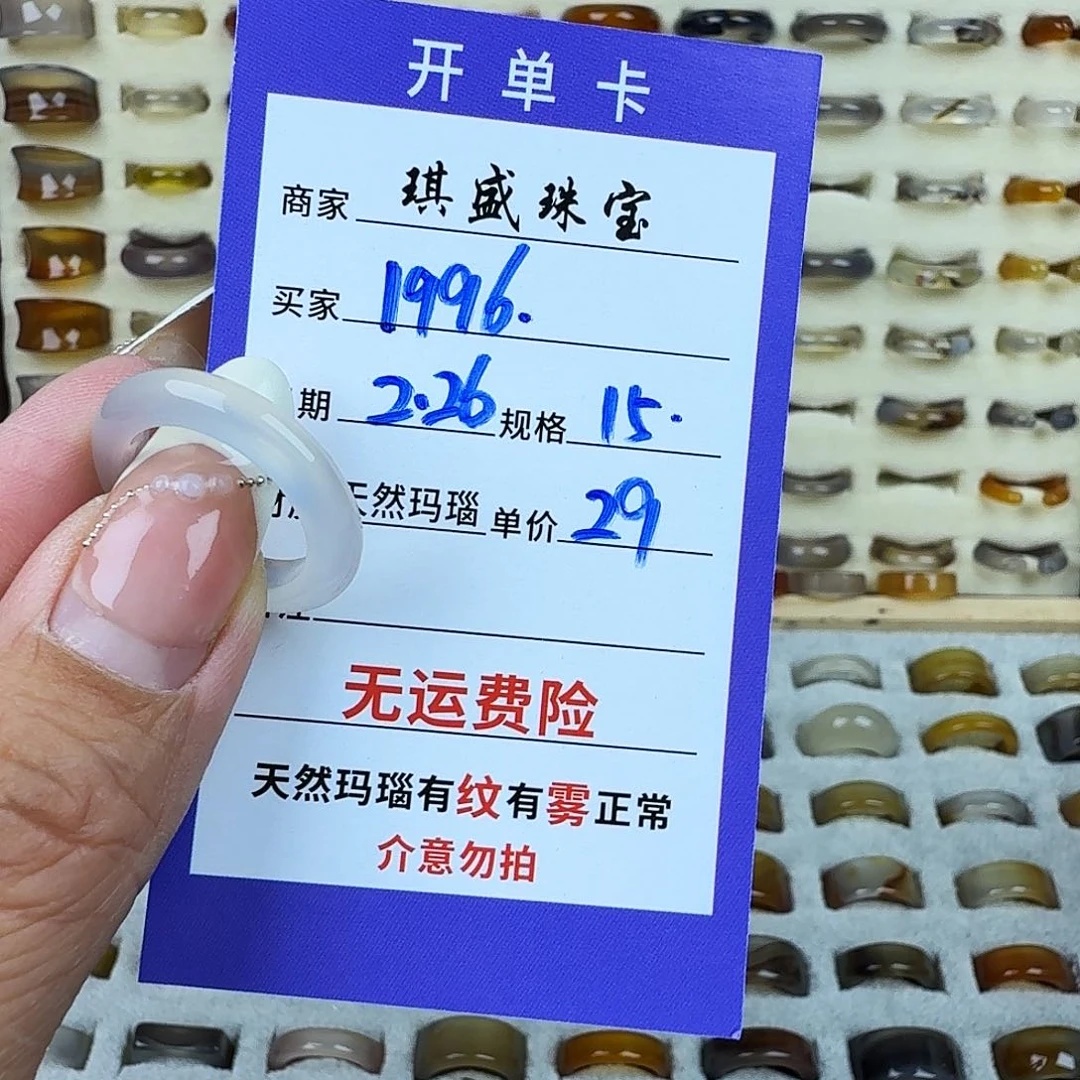 开单卡
商家 琪盛珠宝
买家 1996.
期 2.26 规格 15.
天然玛瑙 单价 29
无运费险
天然玛瑙有纹有雾正常
介意勿拍